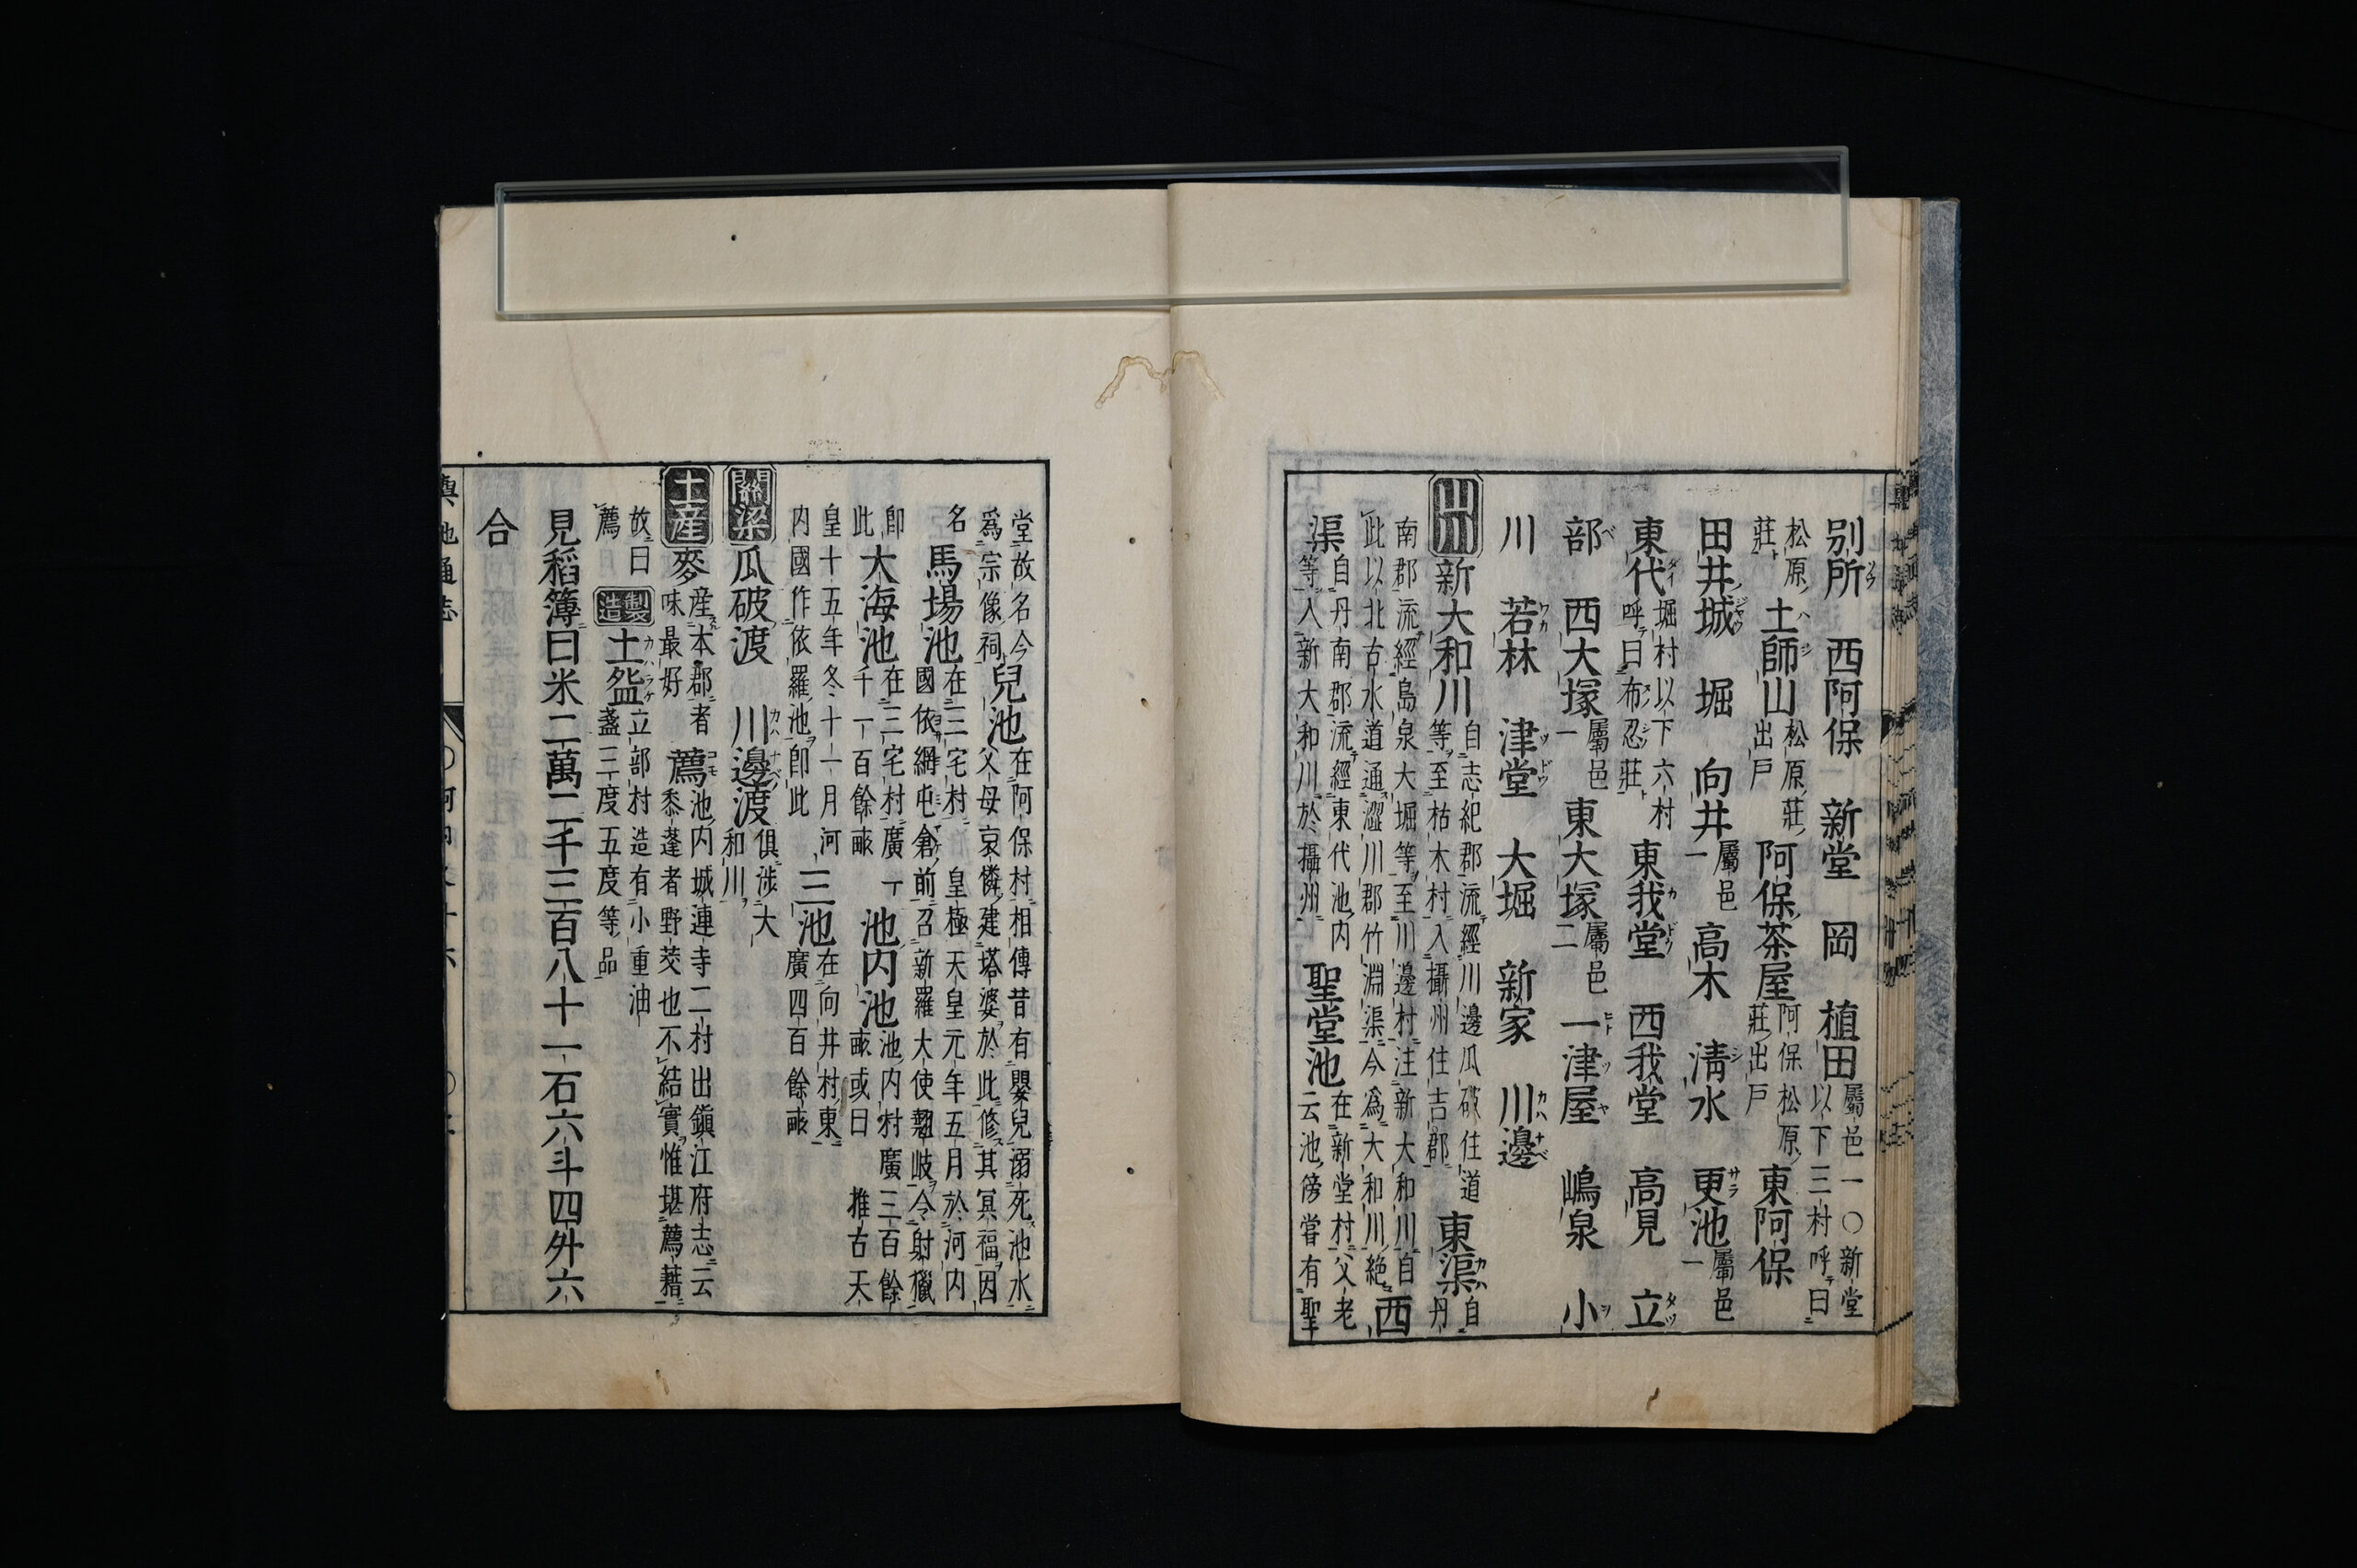 別所 西阿保 新堂 岡 植田屬邑一〇新堂以下三村呼曰
松原莊 土師山松原莊出戸 阿保茶屋阿保松原莊出戸 東阿保
田井城 堀 向井屬邑一 高木 清水 更池屬邑一
東代堀村以下六村呼曰布忍莊 東我堂 西我堂 高見 立
部 西大塚屬邑一 東大塚屬邑二 一津屋 嶋泉 小
川 若林 津堂 大堀 新家 川邊
山川 新大和川自志紀郡流經川邊瓜破住道等至枯木村入攝州住吉郡 東渠自丹
南郡流經島泉大堀等至川邊村注新大和川自此以北古水道通澀川郡竹淵渠今爲大和川絶 西
渠自丹南郡流經東代池内等入新大和川於攝州 聖堂池在新堂村父老云池傍甞有聖
堂故名今爲宗像祠 兒池在阿保村相傳昔有嬰兒溺死池水父母哀憐建塔婆於此修其冥福因
名 馬場池在三宅村 皇極天皇元年五月於河内國依網屯倉前召新羅大使翹岐令射獵
即此 大海池在三宅村廣千一百餘畞 池内池池内村廣三百餘畞或曰 推古天
皇十五年冬十一月河内國作依羅池即此 三池在向井村東廣四百餘畞
關梁 瓜破渡 川邊渡俱涉大和川
土産 麥産本郡者味最好 薦池内城連寺二村出鎭江府志云黍蓬者野茭也不結實惟堪薦藉
故曰薦 製造 土器立部村造有小重油盞三度五度等品
見稻簿曰米二萬二千三百八十一石六斗四外六
合